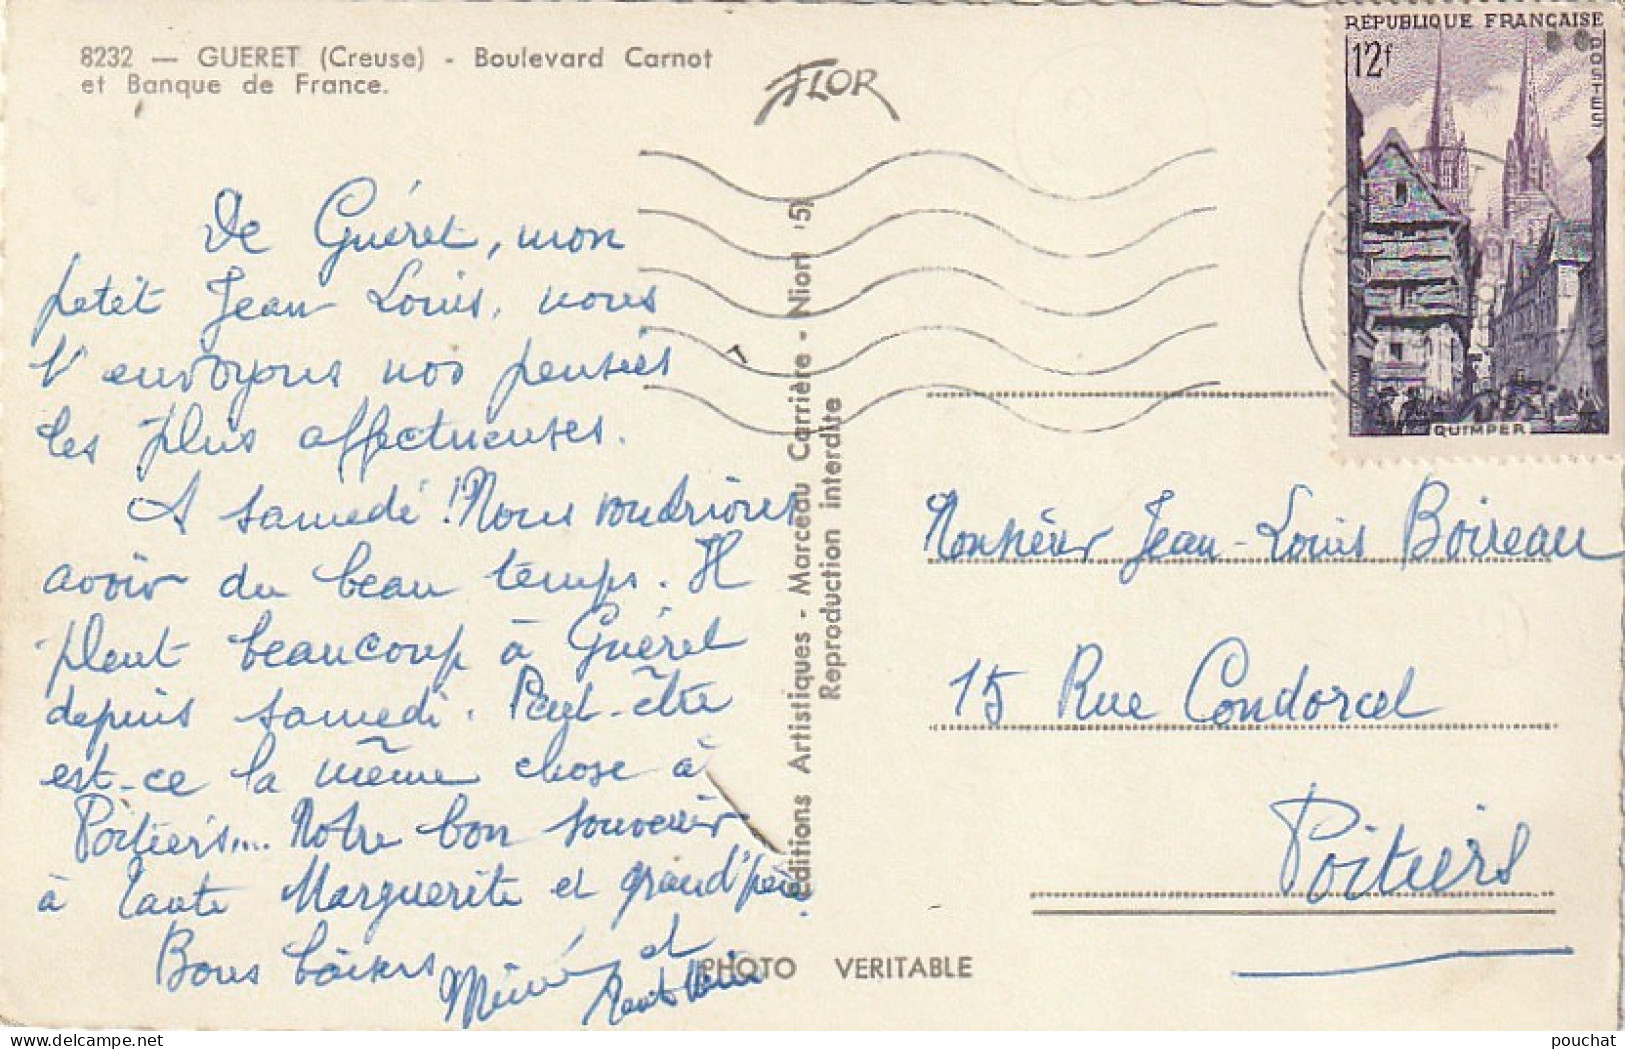 8232 — GUERET (Creuse) - Boulevard Carnot
et Banque de France.
FLOR
RÉPUBLIQUE FRANÇAISE
12f
POSTES
QUIMPER
De Guéret, mon
petit Jean Louis, nous
t'envoyons nos pensées
les plus affectueuses.
A samedi ! Nous voudrions
avoir du beau temps. Il
pleut beaucoup à Guéret
depuis samedi. Peut-être
est-ce la même chose à
Poitiers... Notre bon souvenir
à Tante Marguerite et grand'père.
Bons baisers
et
Editions Artistiques - Marceau Carrière - Niort
Reproduction interdite
Monsieur Jean-Louis Boireau
15 Rue Condorcet
Poitiers
PHOTO VERITABLE
pouchat